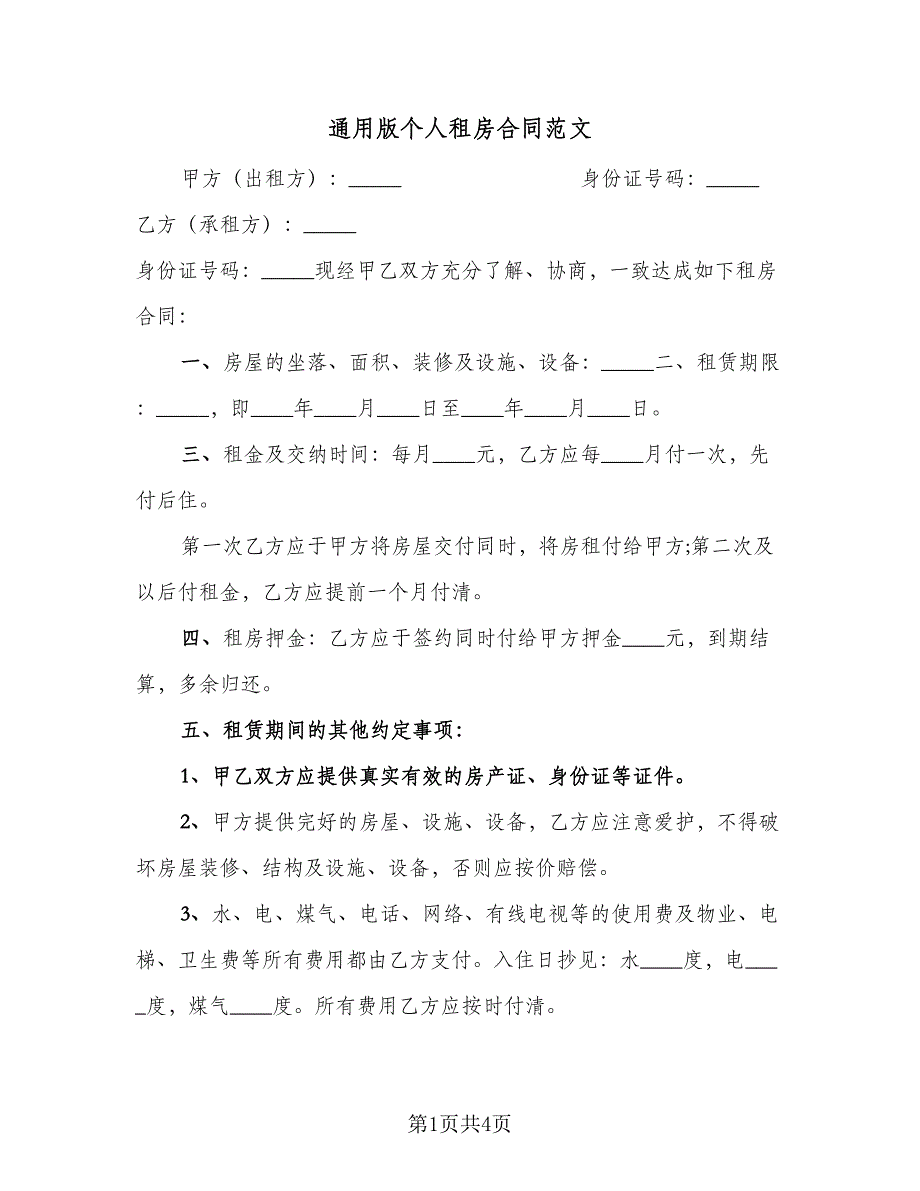 通用版个人租房合同范文
甲方（出租方）：_____ 身份证号码：_____
乙方（承租方）：_____
身份证号码：_____现经甲乙双方充分了解、协商，一致达成如下租房
合同：
一、房屋的坐落、面积、装修及设施、设备：_____二、租赁期限
：_____，即____年____月____日至____年____月____日。
三、租金及交纳时间：每月____元，乙方应每____月付一次，先
付后住。
第一次乙方应于甲方将房屋交付同时，将房租付给甲方;第二次及
以后付租金，乙方应提前一个月付清。
四、租房押金：乙方应于签约同时付给甲方押金____元，到期结
算，多余归还。
五、租赁期间的其他约定事项：
1、甲乙双方应提供真实有效的房产证、身份证等证件。
2、甲方提供完好的房屋、设施、设备，乙方应注意爱护，不得破
坏房屋装修、结构及设施、设备，否则应按价赔偿。
3、水、电、煤气、电话、网络、有线电视等的使用费及物业、电
梯、卫生费等所有费用都由乙方支付。入住日抄见：水____度，电___
_度，煤气____度。所有费用乙方应按时付清。
第1页共4页